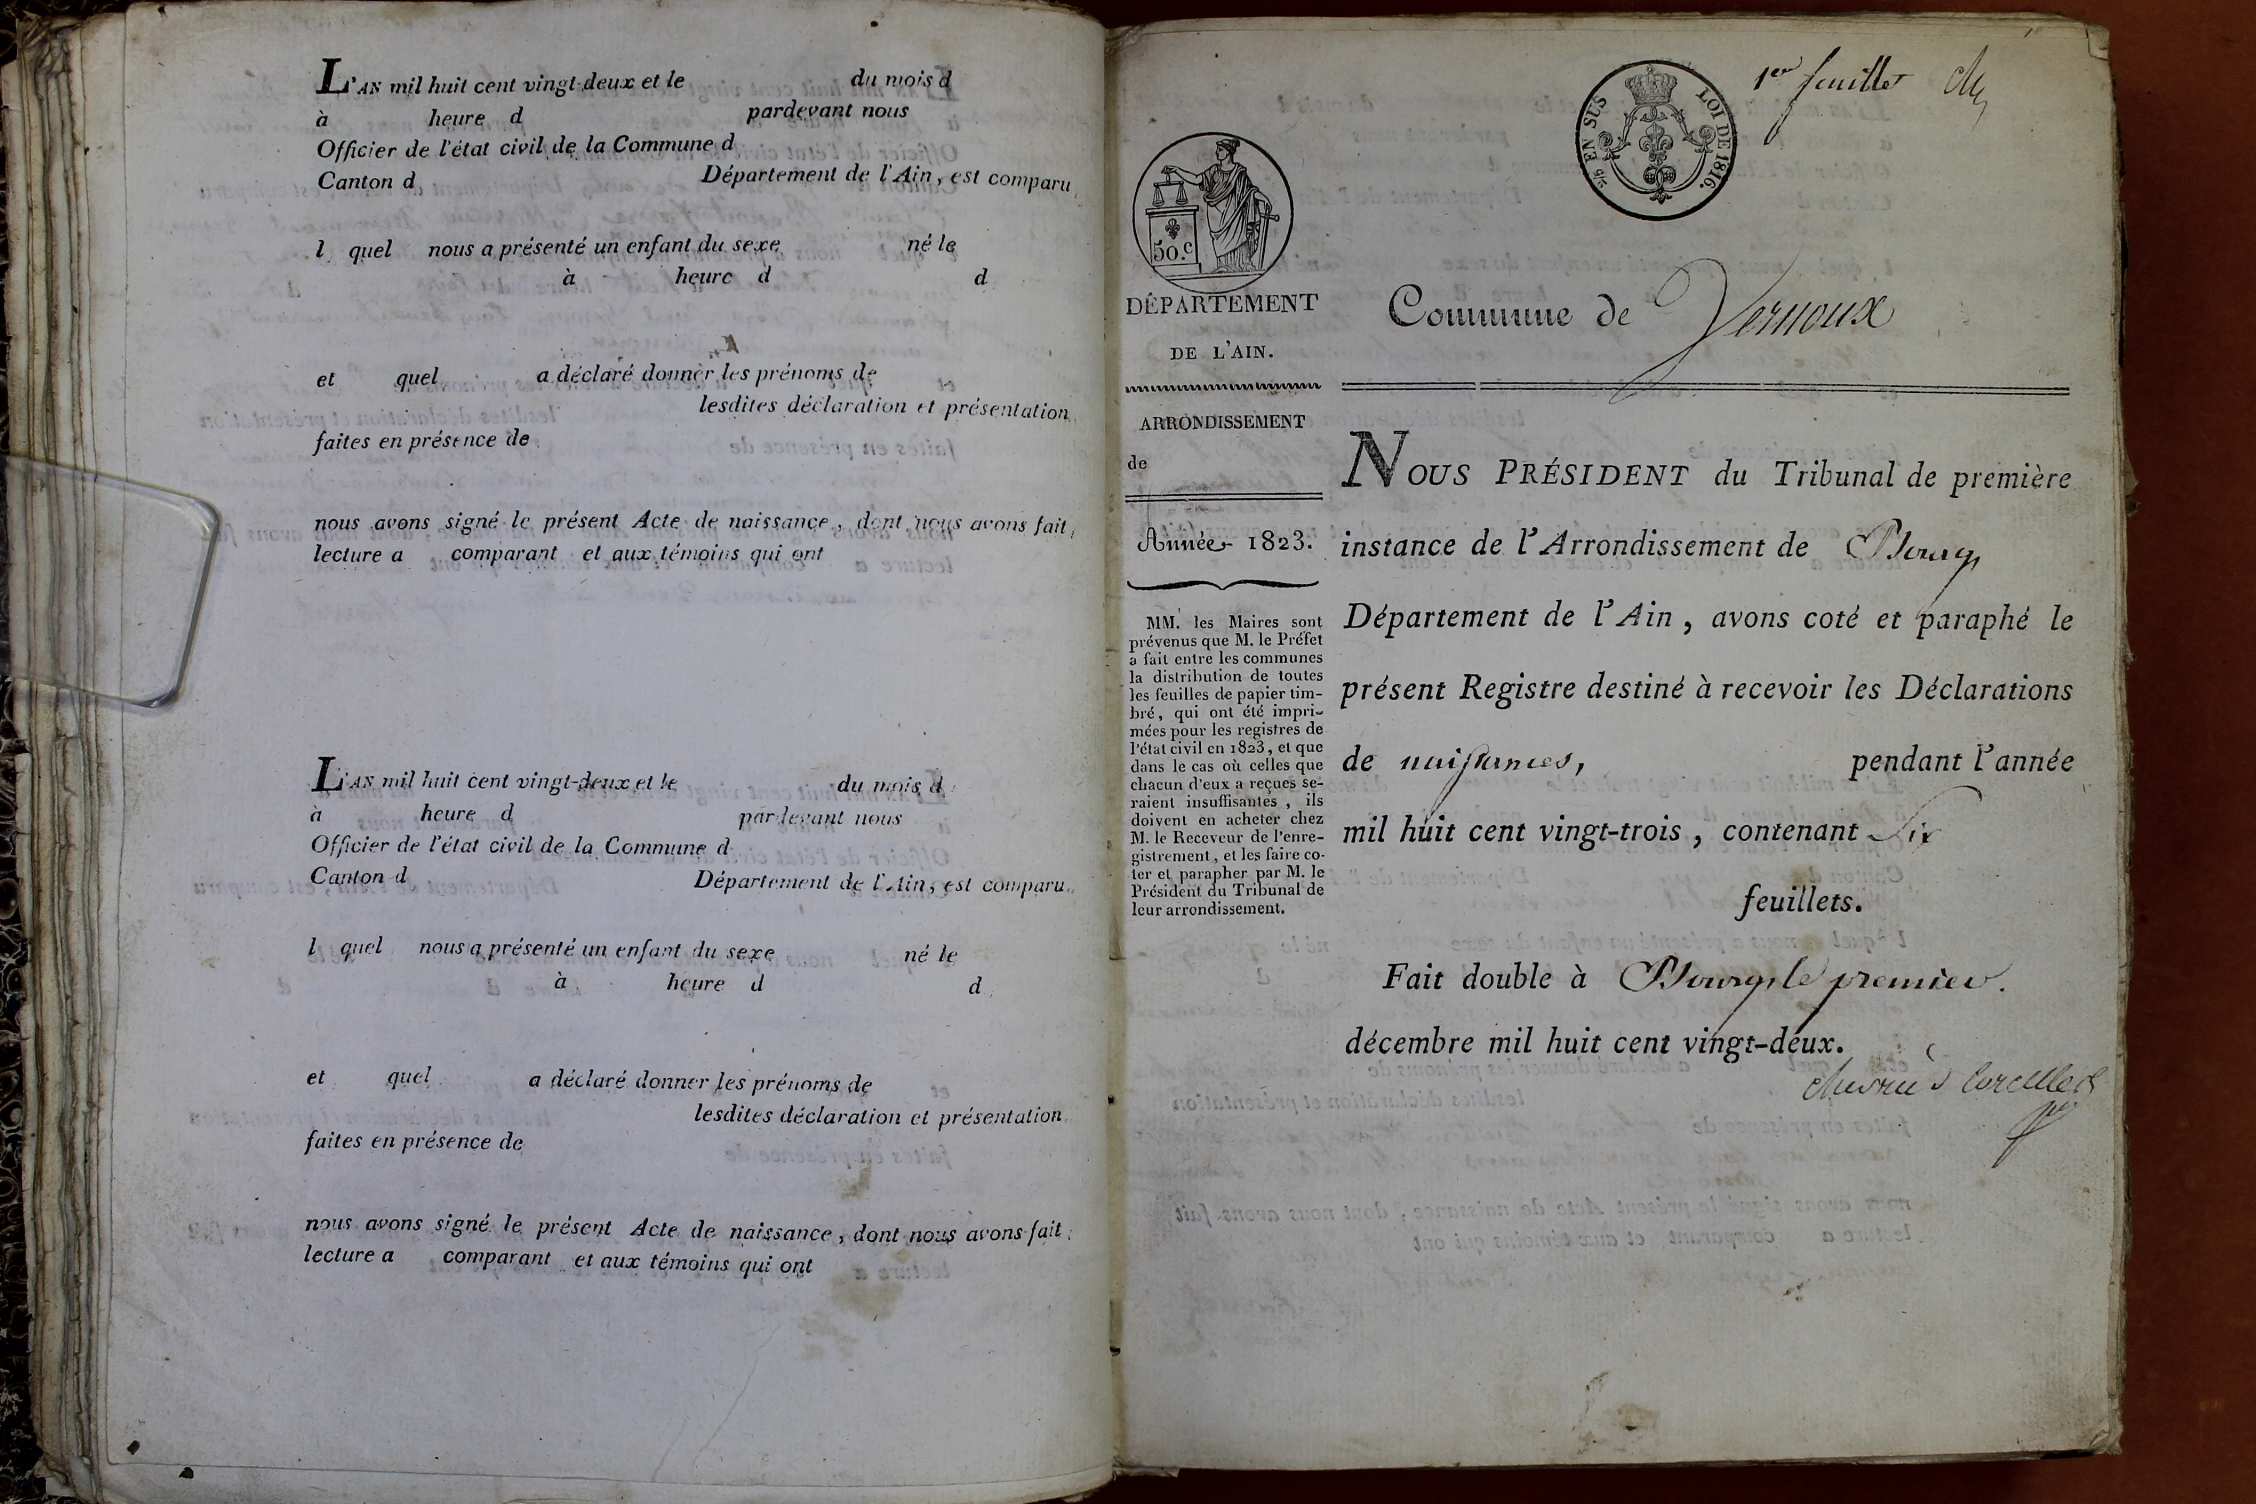 L'AN mil huit cent vingt-deux et le du mois d
à heure d pardevant nous
Officier de l'état civil de la Commune d
Canton d Département de l'Ain, est comparu
l quel nous a présenté un enfant du sexe né le
à heure d d
et quel a déclaré donner les prénoms de
lesdites déclaration et présentation
faites en présence de
nous avons signé le présent Acte de naissance, dont nous avons fait
lecture a comparant et aux témoins qui ont
L'AN mil huit cent vingt-deux et le du mois d
à heure d pardevant nous
Officier de l'état civil de la Commune d
Canton d Département de l'Ain, est comparu
l quel nous a présenté un enfant du sexe né le
à heure d d
et quel a déclaré donner les prénoms de
lesdites déclaration et présentation
faites en présence de
nous avons signé le présent Acte de naissance, dont nous avons fait
lecture a comparant et aux témoins qui ont
1er feuillet
EN SUS LOI DE 1816.
50.c
DÉPARTEMENT
DE L'AIN.
ARRONDISSEMENT
de
Année 1823.
MM. les Maires sont
prévenus que M. le Préfet
a fait entre les communes
la distribution de toutes
les feuilles de papier tim-
bré, qui ont été impri-
mées pour les registres de
l'état civil en 1823, et que
dans le cas où celles que
chacun d'eux a reçues se-
raient insuffisantes, ils
doivent en acheter chez
M. le Receveur de l'enre-
gistrement, et les faire co-
ter et parapher par M. le
Président du Tribunal de
leur arrondissement.
Commune de Vernoux
NOUS PRÉSIDENT du Tribunal de première
instance de l'Arrondissement de Bourg
Département de l'Ain, avons coté et paraphé le
présent Registre destiné à recevoir les Déclarations
de naissances, pendant l'année
mil huit cent vingt-trois, contenant Six
feuillets.
Fait double à Bourg, le premier.
décembre mil huit cent vingt-deux.